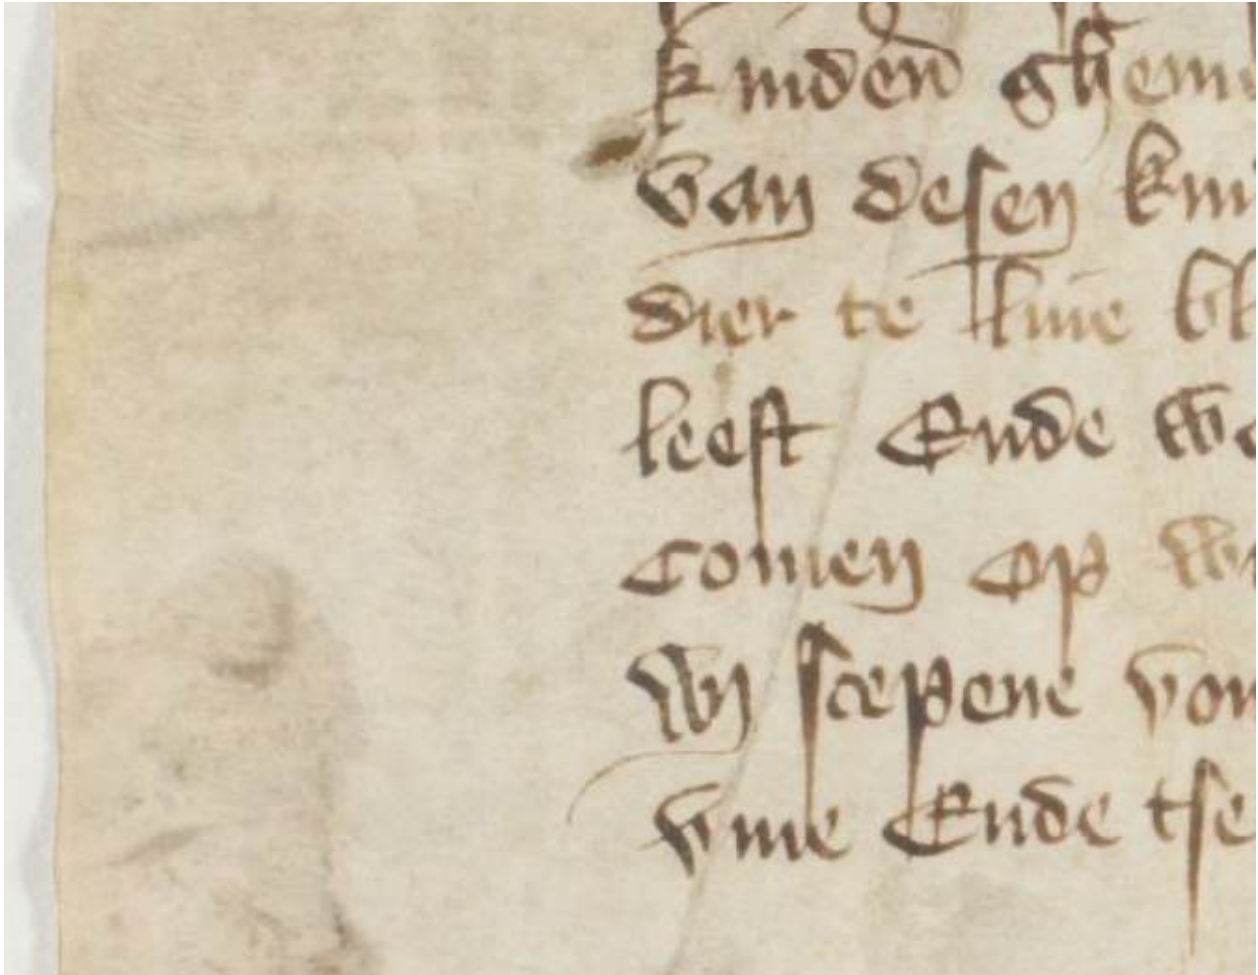 kinden ghem
van desen kin
dier te liue bl
leeft Ende we
comen op w
wij scepene von
viue Ende tse